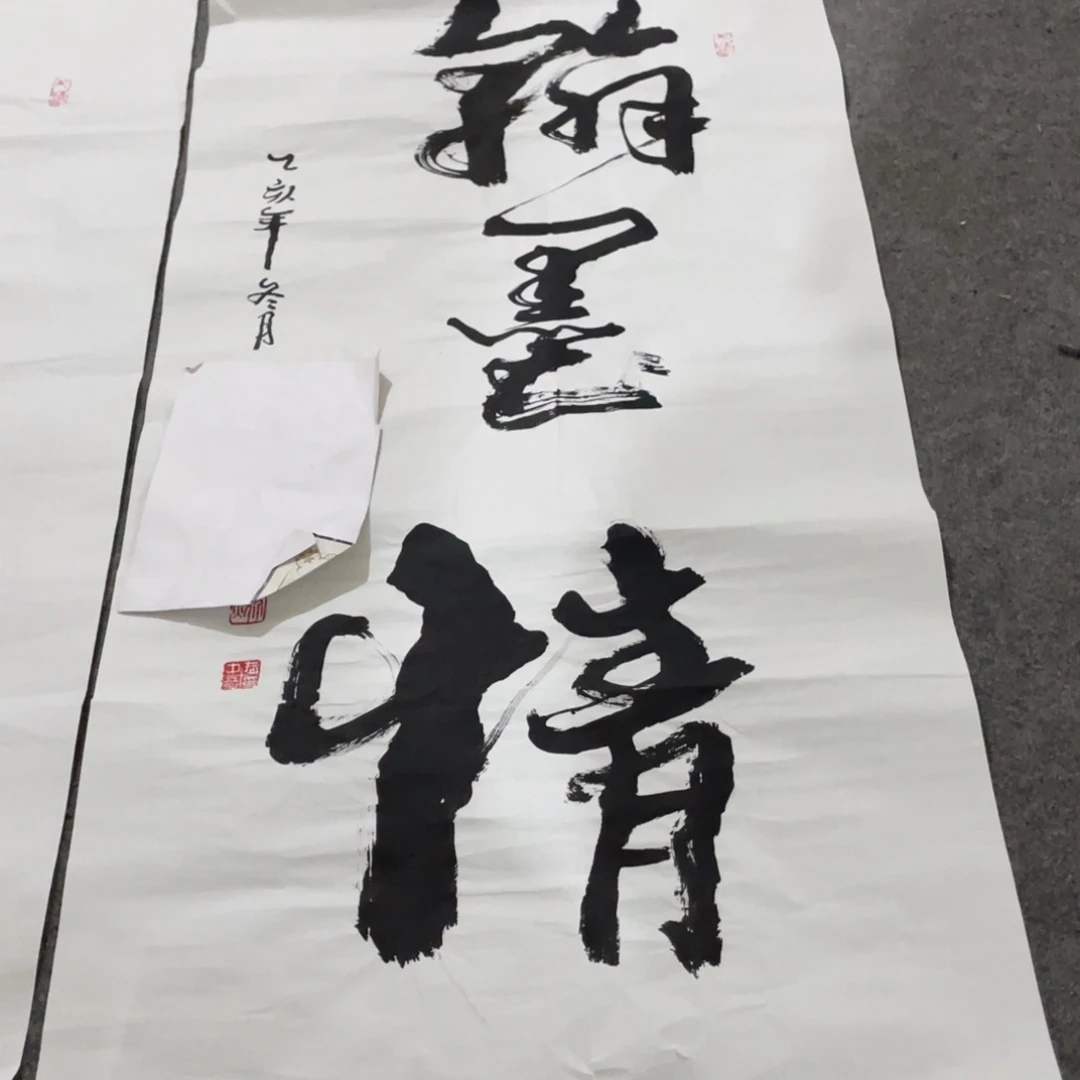 翰墨情
乙亥年 冬月